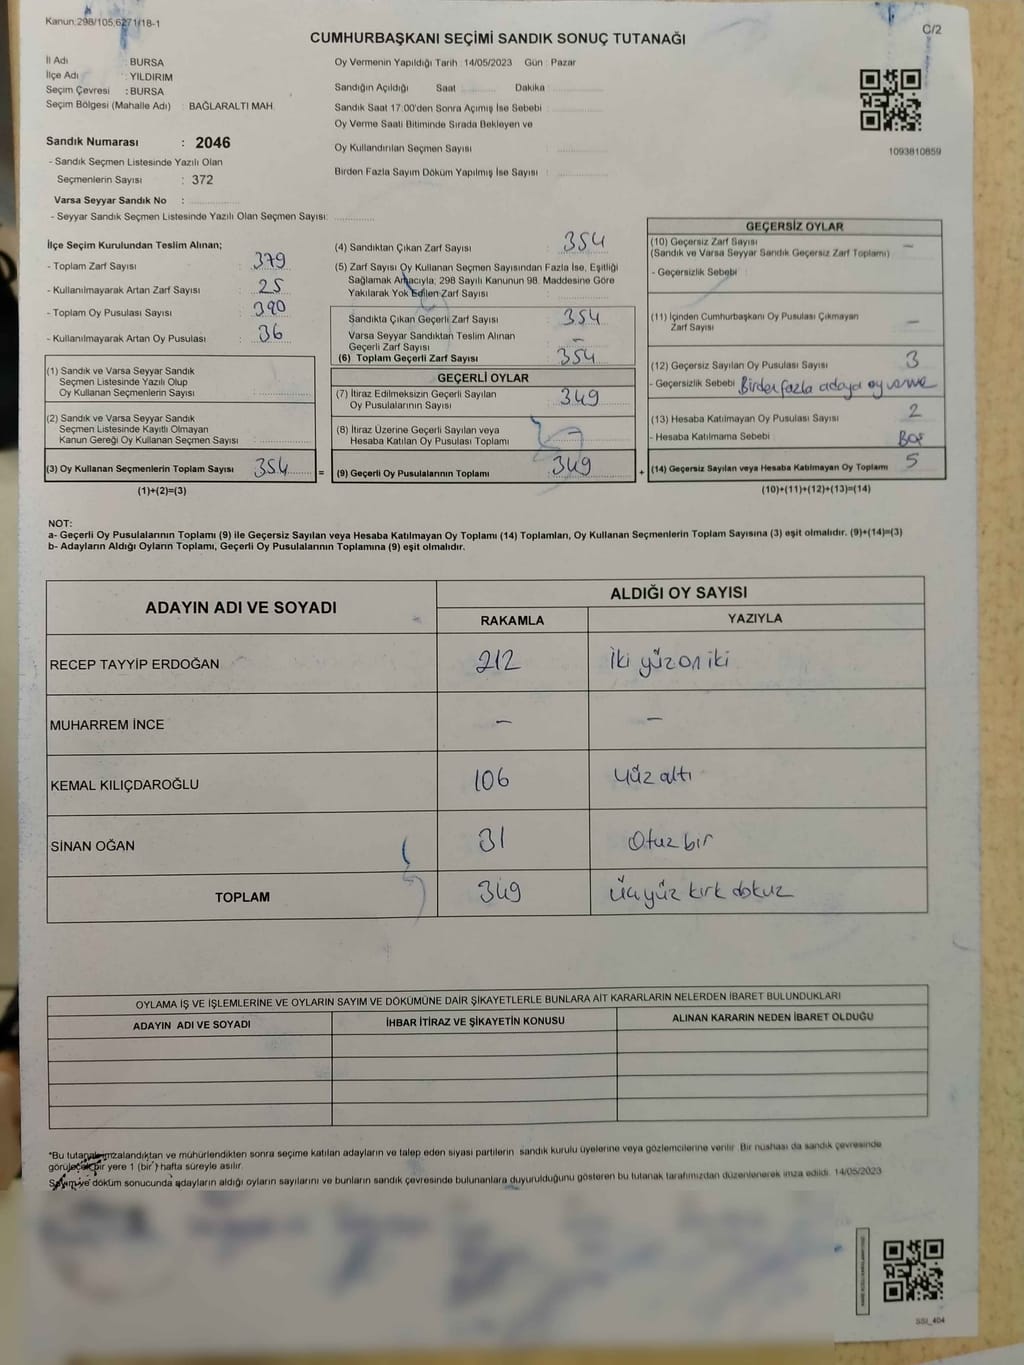 Kanun:298/105,6271/18-1
C/2
CUMHURBAŞKANI SEÇİMİ SANDIK SONUÇ TUTANAĞI
İl Adı : BURSA
İlçe Adı : YILDIRIM
Seçim Çevresi : BURSA
Seçim Bölgesi (Mahalle Adı) : BAĞLARALTI MAH.
Sandık Numarası : 2046
- Sandık Seçmen Listesinde Yazılı Olan
Seçmenlerin Sayısı : 372
Varsa Seyyar Sandık No :
- Seyyar Sandık Seçmen Listesinde Yazılı Olan Seçmen Sayısı:
Oy Vermenin Yapıldığı Tarih : 14/05/2023 Gün : Pazar
Sandığın Açıldığı Saat Dakika
Sandık Saat 17:00'den Sonra Açımış İse Sebebi :
Oy Verme Saati Bitiminde Sırada Bekleyen ve
Oy Kullandırılan Seçmen Sayısı :
Birden Fazla Sayım Döküm Yapılmış İse Sayısı :
1093810859
İlçe Seçim Kurulundan Teslim Alınan;
- Toplam Zarf Sayısı : 379
- Kullanılmayarak Artan Zarf Sayısı : 25
- Toplam Oy Pusulası Sayısı : 390
- Kullanılmayarak Artan Oy Pusulası : 36
(1) Sandık ve Varsa Seyyar Sandık
Seçmen Listesinde Yazılı Olup
Oy Kullanan Seçmenlerin Sayısı :
(2) Sandık ve Varsa Seyyar Sandık
Seçmen Listesinde Kayıtlı Olmayan
Kanun Gereği Oy Kullanan Seçmen Sayısı :
(3) Oy Kullanan Seçmenlerin Toplam Sayısı : 354 =
(1)+(2)=(3)
(4) Sandıktan Çıkan Zarf Sayısı : 354
(5) Zarf Sayısı Oy Kullanan Seçmen Sayısından Fazla İse, Eşitliği
Sağlamak Amacıyla; 298 Sayılı Kanunun 98. Maddesine Göre
Yakılarak Yok Edilen Zarf Sayısı :
Sandıkta Çıkan Geçerli Zarf Sayısı : 354
Varsa Seyyar Sandıktan Teslim Alınan
Geçerli Zarf Sayısı : -
(6) Toplam Geçerli Zarf Sayısı : 354
GEÇERLİ OYLAR
(7) İtiraz Edilmeksizin Geçerli Sayılan
Oy Pusulalarının Sayısı : 349
(8) İtiraz Üzerine Geçerli Sayılan veya
Hesaba Katılan Oy Pusulası Toplamı : -
(9) Geçerli Oy Pusulalarının Toplamı : 349 +
GEÇERSİZ OYLAR
(10) Geçersiz Zarf Sayısı : -
(Sandık ve Varsa Seyyar Sandık Geçersiz Zarf Toplamı)
- Geçersizlik Sebebi :
(11) İçinden Cumhurbaşkanı Oy Pusulası Çıkmayan
Zarf Sayısı : -
(12) Geçersiz Sayılan Oy Pusulası Sayısı : 3
- Geçersizlik Sebebi : Birden fazla adaya oy verme
(13) Hesaba Katılmayan Oy Pusulası Sayısı : 2
- Hesaba Katılmama Sebebi : Boş
(14) Geçersiz Sayılan veya Hesaba Katılmayan Oy Toplamı : 5
(10)+(11)+(12)+(13)=(14)
NOT:
a- Geçerli Oy Pusulalarının Toplamı (9) ile Geçersiz Sayılan veya Hesaba Katılmayan Oy Toplamı (14) Toplamları, Oy Kullanan Seçmenlerin Toplam Sayısına (3) eşit olmalıdır. (9)+(14)=(3)
b- Adayların Aldığı Oyların Toplamı, Geçerli Oy Pusulalarının Toplamına (9) eşit olmalıdır.
ADAYIN ADI VE SOYADI
ALDIĞI OY SAYISI
RAKAMLA YAZIYLA
RECEP TAYYİP ERDOĞAN 212 İki yüz on iki
MUHARREM İNCE - -
KEMAL KILIÇDAROĞLU 106 Yüz altı
SİNAN OĞAN 31 Otuz bir
TOPLAM 349 Üçyüz kırk dokuz
OYLAMA İŞ VE İŞLEMLERİNE VE OYLARIN SAYIM VE DÖKÜMÜNE DAİR ŞİKAYETLERLE BUNLARA AİT KARARLARIN NELERDEN İBARET BULUNDUKLARI
ADAYIN ADI VE SOYADI İHBAR İTİRAZ VE ŞİKAYETİN KONUSU ALINAN KARARIN NEDEN İBARET OLDUĞU
*Bu tutanak imzalandıktan ve mühürlendikten sonra seçime katılan adayların ve talep eden siyasi partilerin sandık kurulu üyelerine veya gözlemcilerine verilir. Bir nüshası da sandık çevresinde
görülecek bir yere 1 (bir ) hafta süreyle asılır.
Sayım ve döküm sonucunda adayların aldığı oyların sayılarını ve bunların sandık çevresinde bulunanlara duyurulduğunu gösteren bu tutanak tarafımızdan düzenlenerek imza edildi. 14/05/2023
SSI_404